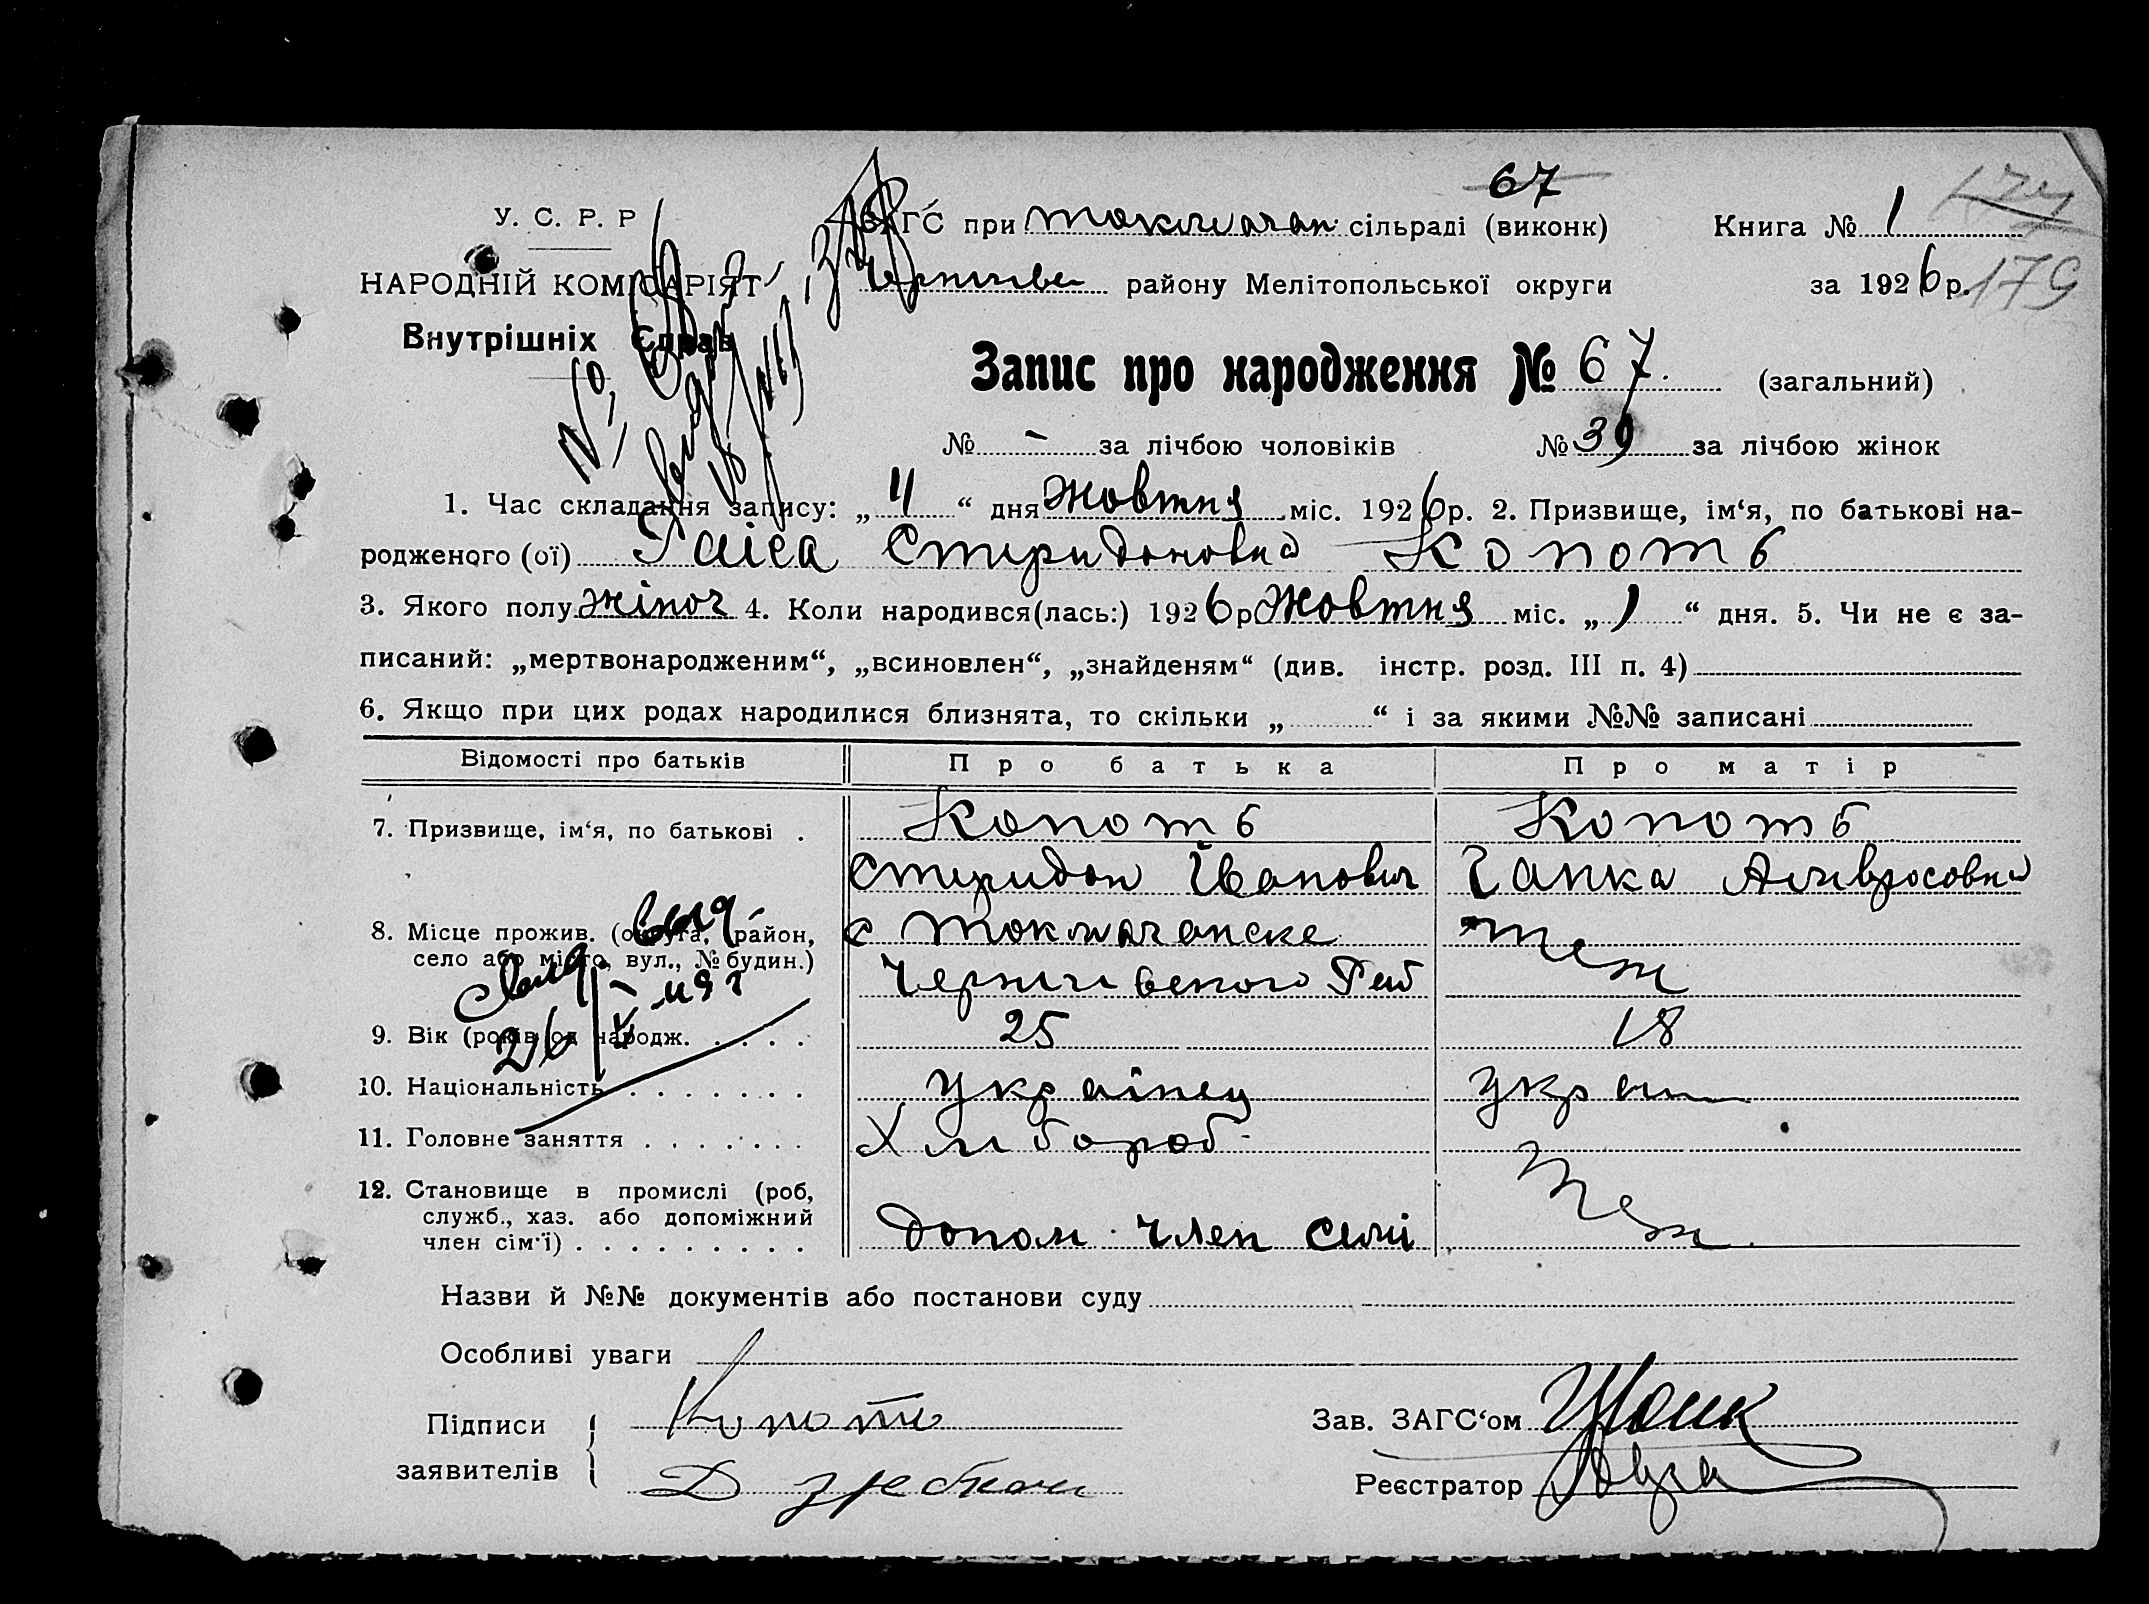 67
У. С. Р. Р
ЗАГС при Токмачан. сільраді (виконк)
Книга № 1
174
НАРОДНІЙ КОМІСАРІЯТ
Чернигівск району Мелітопольської округи
за 1926 р. 179
Внутрішніх Справ
Запис про народження № 67. (загальний)
№ – за лічбою чоловіків № 39 за лічбою жінок
1. Час складання запису: „ 11 “ дня Жовтня міс. 1926 р. 2. Призвище, ім‘я, по батькові на-
родженого (ої) Раіса Спиридоновна Копоть
3. Якого полу жіноч 4. Коли народився(лась:) 1926 р Жовтня міс. „ 1 “ дня. 5. Чи не є за-
писаний: „мертвонародженим“, „всиновлен“, „знайденям“ (див. інстр. розд. III п. 4)
6. Якщо при цих родах народилися близнята, то скільки „ “ і за якими №№ записані
Відомості про батьків Про батька Про матір
7. Призвище, ім‘я, по батькові . Копоть Копоть
Спиридон Іванович Ганка Амвросовна
8. Місце прожив. (округа, район, с Токмачанске Теж
село або місто, вул., № будин.) Чернигівского Рай
9. Вік (років од народж. . . . . 25 18
10. Національність . . . . . . . Українец Укра
11. Головне заняття . . . . . . . Хлібороб
12. Становище в промислі (роб,
служб., хаз. або допоміжний
член сім‘ї) . . . . . . . . . допом. член сімї Теж
Назви й №№ документів або постанови суду
Особливі уваги
Підписи Копоть Зав. ЗАГС‘ом
заявителів Реєстратор